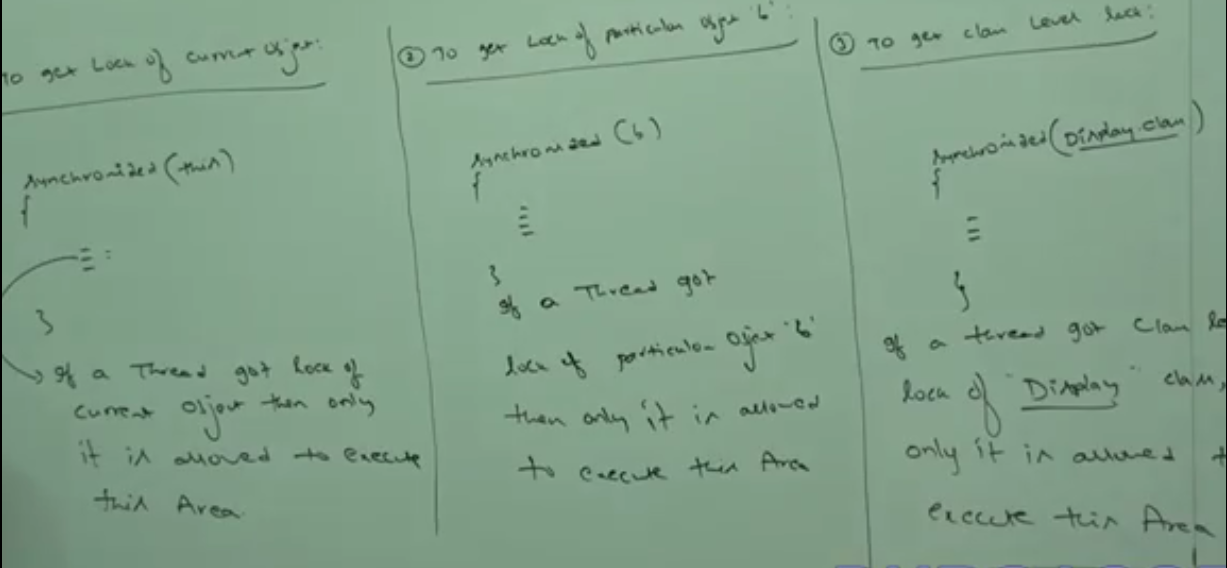 To get Lock of current object:
synchronized(this)
{
}
If a Thread got lock of
current object then only
it is allowed to execute
this Area.
② To get Lock of particular object 'b':
synchronized(b)
{
}
If a Thread got
lock of particular object 'b'
then only it is allowed
to execute this Area
③ To get class Level lock:
synchronized(Display.class)
{
}
If a thread got class
lock of "Display" class,
only it is allowed
execute this Area